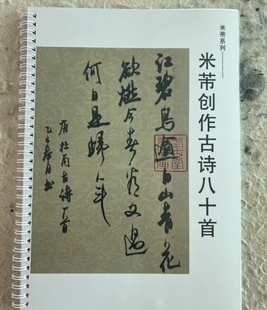 米芾系列——
米芾创作古诗八十首
江碧鸟逾白山青花
欲燃今春看又过
何日是归年
唐杜甫古诗一首
春月书